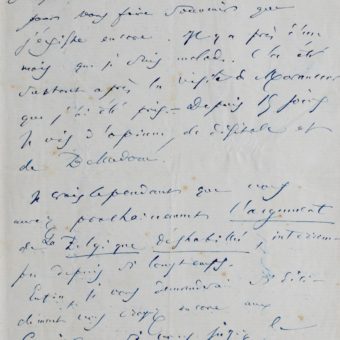 pour vous faire souvenir que
j'existe encore. Il y a près d'un
mois que je suis malade. C'a été
surtout après la visite de
que j'ai été pris. Depuis 15 jours
je vis d'opium, de digitale et
de Belladone.
Je crois cependant que vous
aurez prochainement l'argument
de La Belgique déshabillée,
pu depuis si longtemps.
Enfin je vous demanderai si
vous croyez encore aux